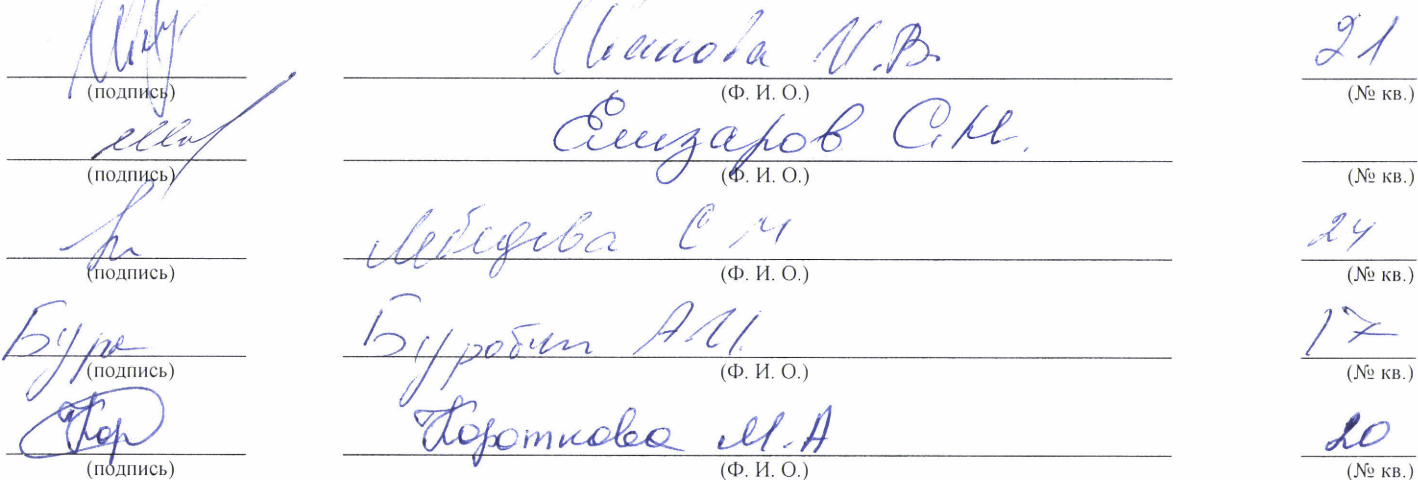 Иванова И.В. 21
(подпись) (Ф. И. О.) (№ кв.)
Елизаров С.Н.
(подпись) (Ф. И. О.) (№ кв.)
Лебедева С М 24
(подпись) (Ф. И. О.) (№ кв.)
Бур Буробин А И 17
(подпись) (Ф. И. О.) (№ кв.)
Кор Короткова М.А 20
(подпись) (Ф. И. О.) (№ кв.)